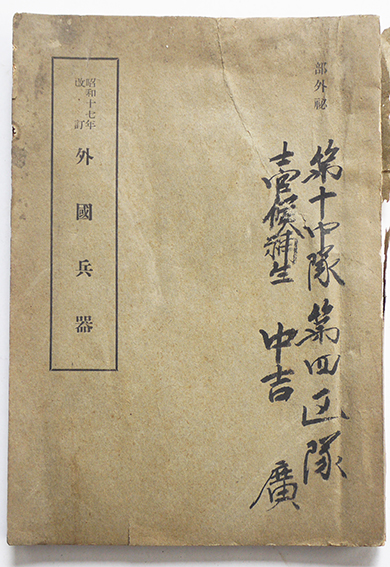 部外秘
第十中隊 第四区隊
士官候補生 中吉 廣
昭和十七年
改訂
外國兵器